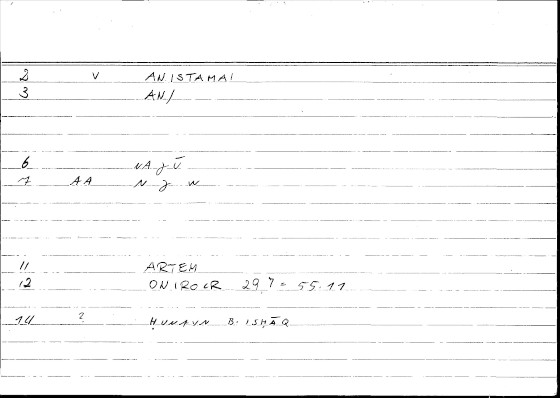 2 V ANISTAMAI
3 AN/
6 NAǧŪ
7 AA N ǧ W
11 ARTEM
12 ONIROCR 29.7 = 55.11
14 ? ḤUNAYN B. ISḤĀQ